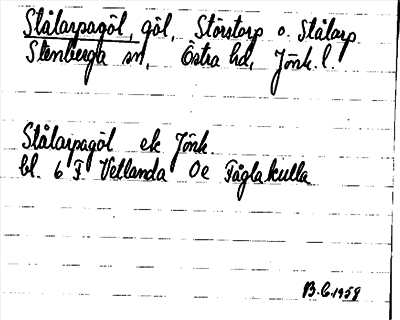 Stålarpagöl, göl, Störstorp o. Stålarp
Stenberga sn, Östra hd, Jönk. l.
Stålarpagöl ek Jönk.
bl. 6 F Vetlanda Oe Fåglakulla
B.C. 1959